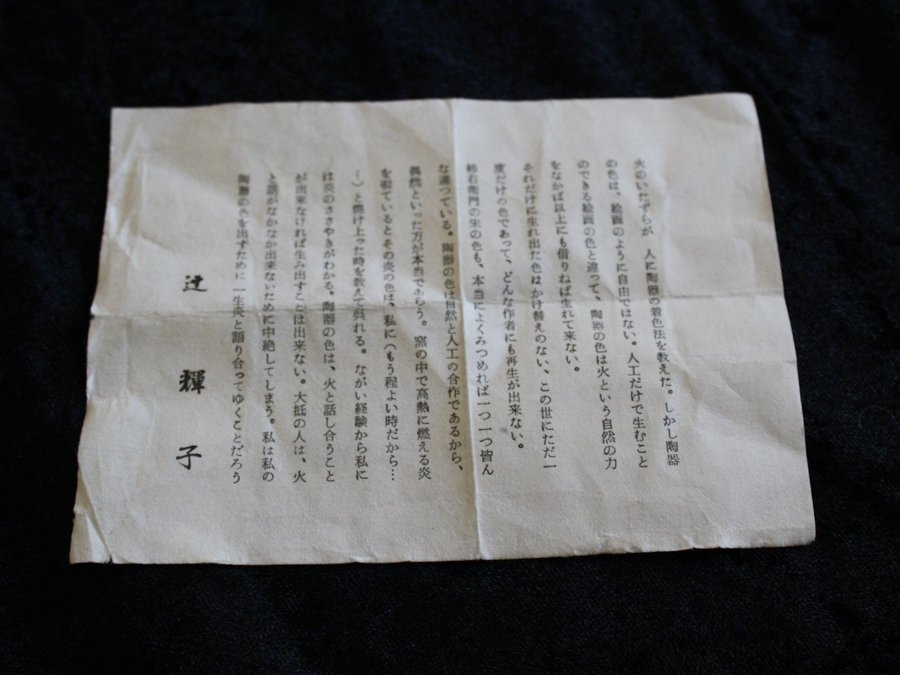 火のいたずらが 人に陶器の着色法を教えた。しかし陶器
の色は、絵画のように自由ではない。人工だけで生むこと
のできる絵画の色と違って、陶器の色は火という自然の力
をなかば以上にも借りねば生れて来ない。
それだけに生れ出た色はかけ替えのない、この世にただ一
度だけの色であって、どんな作者にも再生が出来ない。
柿右衛門の朱の色も、本当によくみつめれば一つ一つ皆ん
な違っている。陶器の色は自然と人工の合作であるから、
偶然といった方が本当であろう。窯の中で高熱に燃える炎
を覗ているとその炎の色は、私に(もう程よい時だから…
…)と焼け上った時を教えて呉れる。ながい経験から私に
は炎のささやきがわかる。陶器の色は、火と話し合うこと
が出来なければ生み出すことは出来ない。大抵の人は、火
と話がなかなか出来ないために中絶してしまう。私は私の
陶器の色を出すために一生炎と語り合ってゆくことだろう
辻 輝子